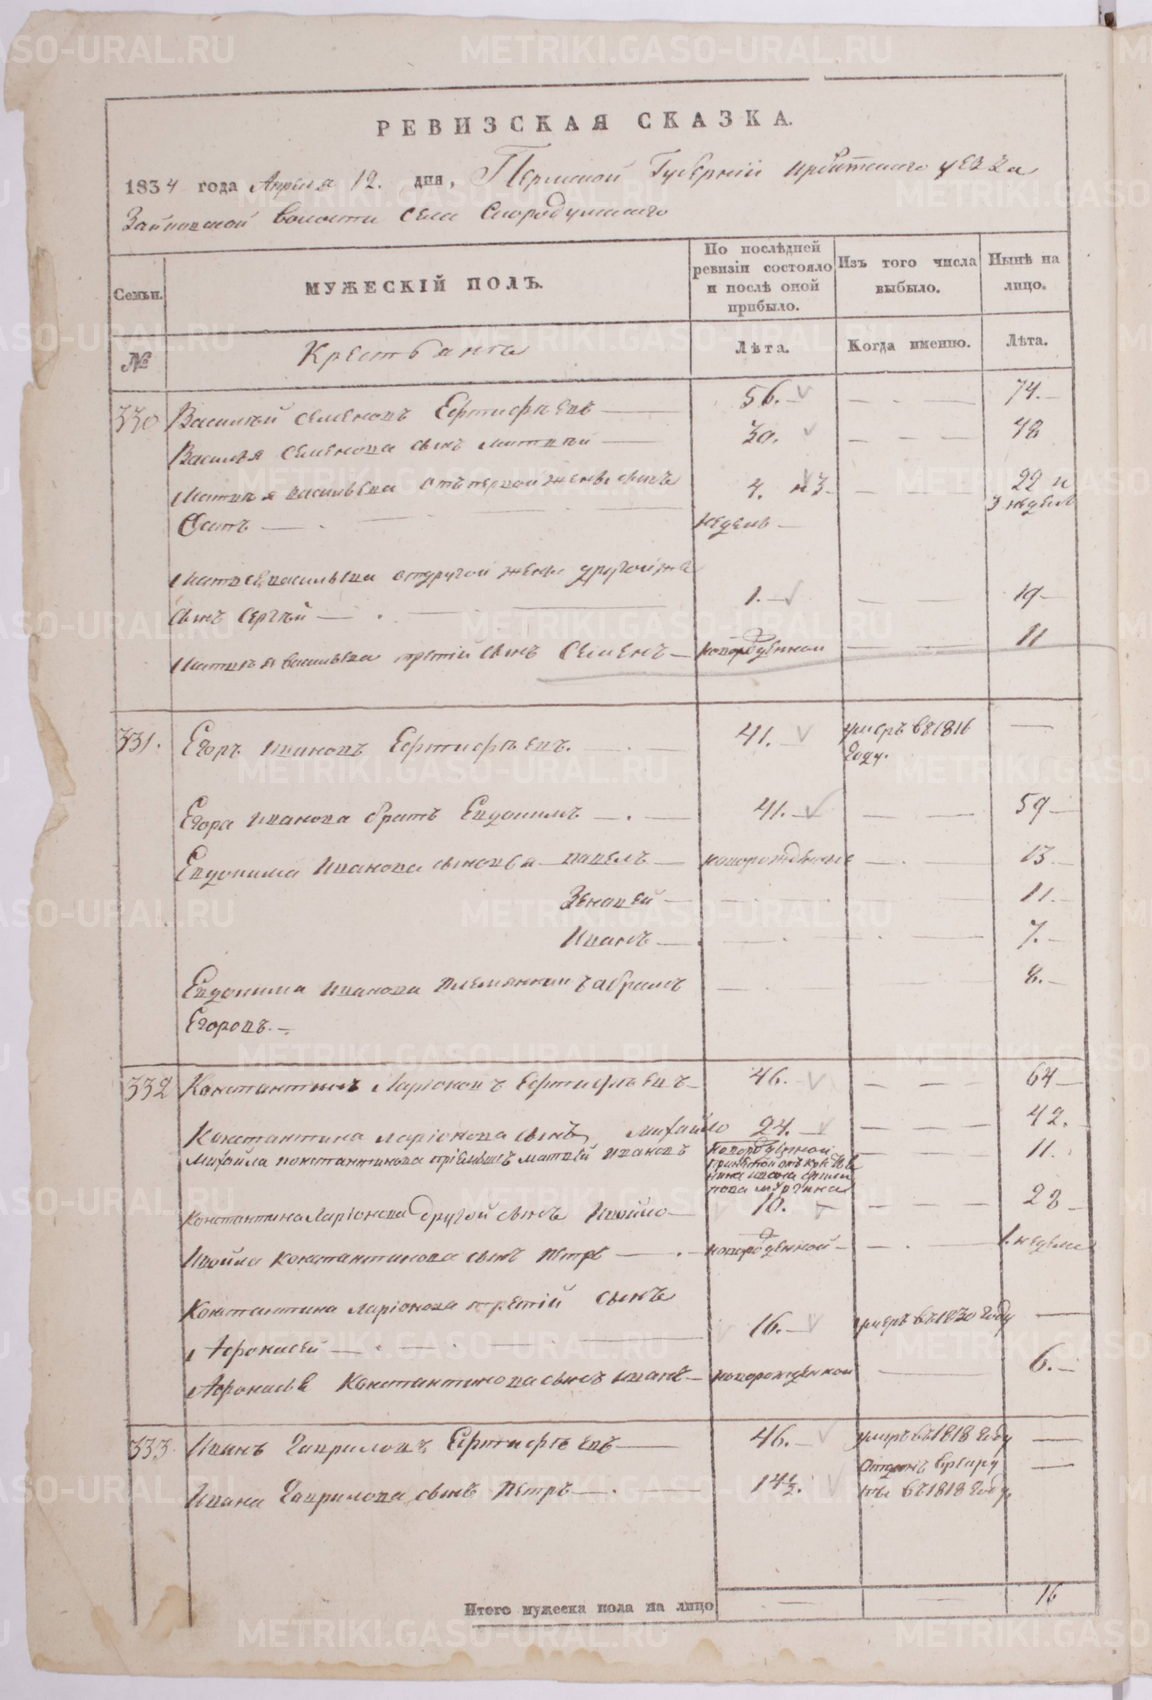 РЕВИЗСКАЯ СКАЗКА.
1834 года Апреля 12. дня, Пермской Губернии Ирбитского уезда
Зайковской волости села Скородумского
Семьи.
МУЖЕСКІЙ ПОЛЪ.
По послѣдней ревизіи состояло и послѣ оной прибыло.
Изъ того числа выбыло.
Нынѣ на лицо.
№
Крестьяне
Лѣта.
Когда именно.
Лѣта.
330 Василий Семеновъ Ефтифѣевъ — 56. — 74. —
Василья Семенова сынъ Матвей — 30. — 48
Матвея васильева отъ первой жены сынъ 4. и 3. — 22 и
Осипъ — недель — 3 недель
Матвея васильева отдругой жены другой же
сынъ Сергѣй — 1. — 19 —
Матвея васильева третій сынъ Семенъ — новорожденной — 11
331. Егоръ Ивановъ Ефтифѣевъ. — 41. умеръ въ 1816 —
Году.
Егора Иванова братъ Евдокимъ — 41. — 59 —
Евдокима Иванова сыновья Павелъ — новорожденные — 13. —
Зеновей — 11. —
Иванъ — 7. —
Евдокима Иванова племянникъ Абрамъ — 8. —
Егоровъ. —
332 Константинъ Ларіоновъ Ефтифѣевъ — 46. — 64 —
Константина Ларіонова сынъ Михайло 24. — 42.
Михайла константинова приемышъ Матвей Ивановъ новорожденной — 11.
Константина Ларіонова другой сынъ Измайло — 10. — 28 —
Измайла константинова сынъ Петръ — новорожденной — 1. неделя
Константина Ларіонова третій сынъ
Афонасей — 16. — умеръ въ 1830 году —
Афонасья Константинова сынъ иванъ — новорожденной — 6. —
333. Иванъ Гавриловъ Ефтифѣевъ — 46. — умеръ въ 1818 году —
Отданъ в рекру —
Ивана Гаврилова сынъ Петръ — 14½. ты въ 1818 году
Итого мужеска пола на лицо — — 16
METRIKI.GASO-URAL.RU